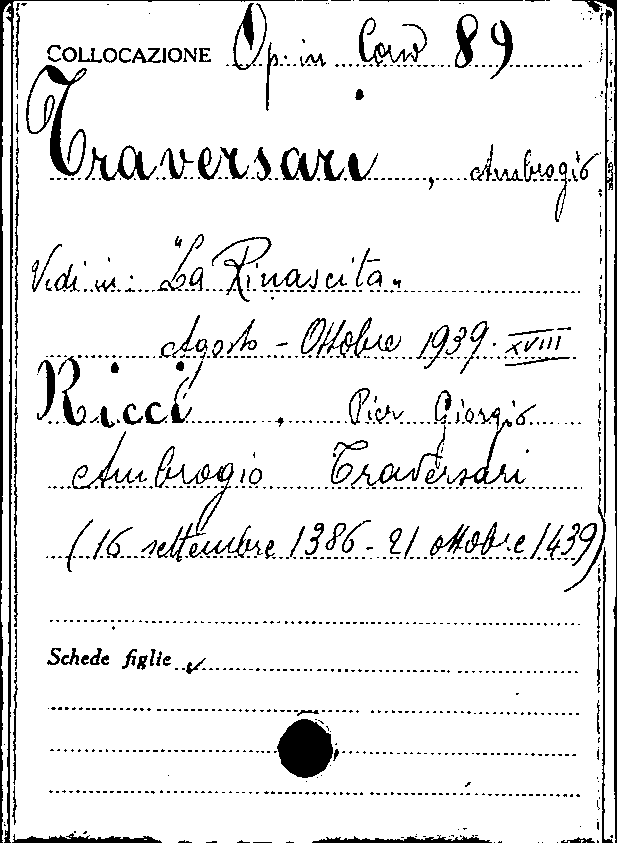 COLLOCAZIONE Op. in Cons 89
Traversari, Ambrogio
Vedi in: "La Rinascita"
Agosto - Ottobre 1939. XVIII
Ricci, Pier Giorgio
Ambrogio Traversari
(16 settembre 1386 - 21 ottobre 1439)
Schede figlie